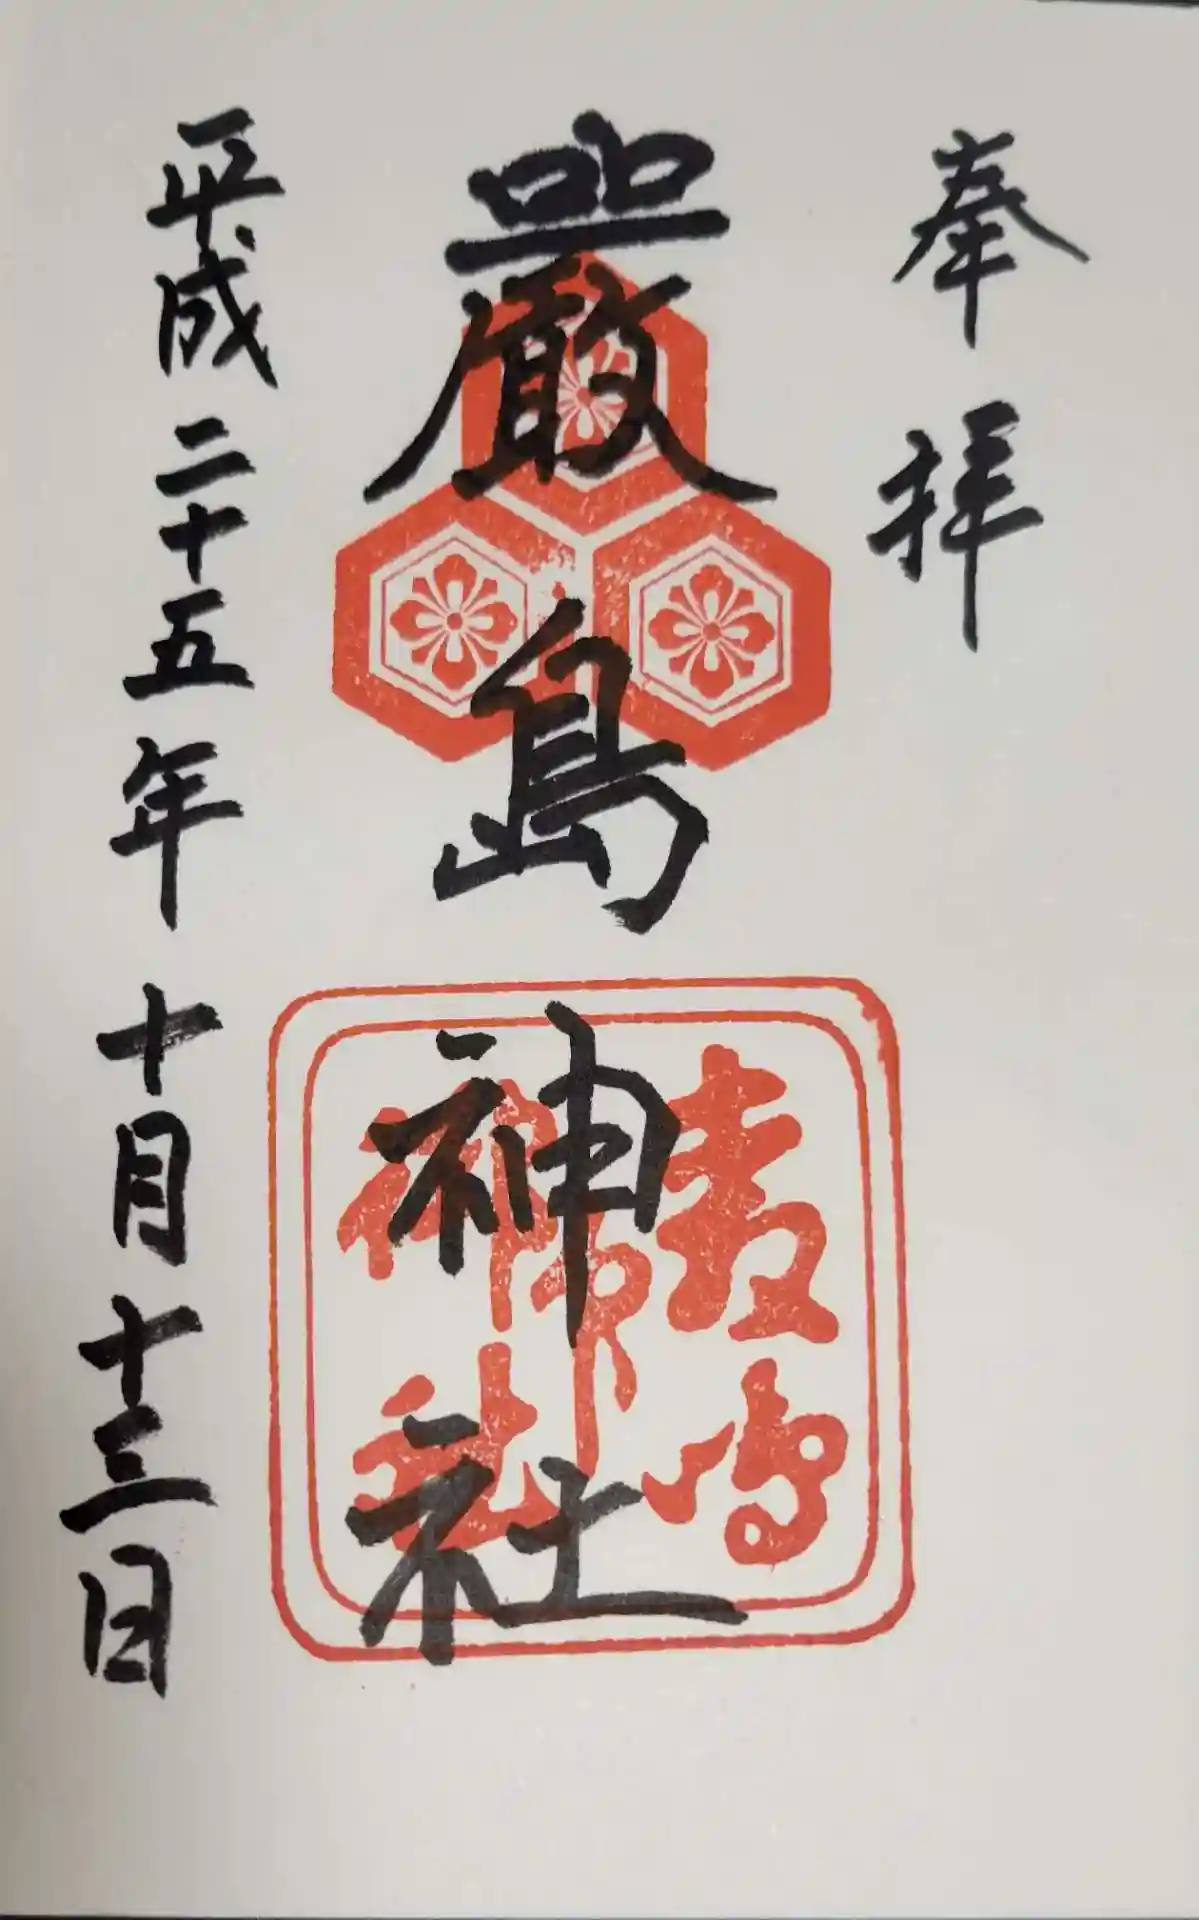 奉拝
嚴島神社
平成二十五年十月十三日
嚴嶋
神社